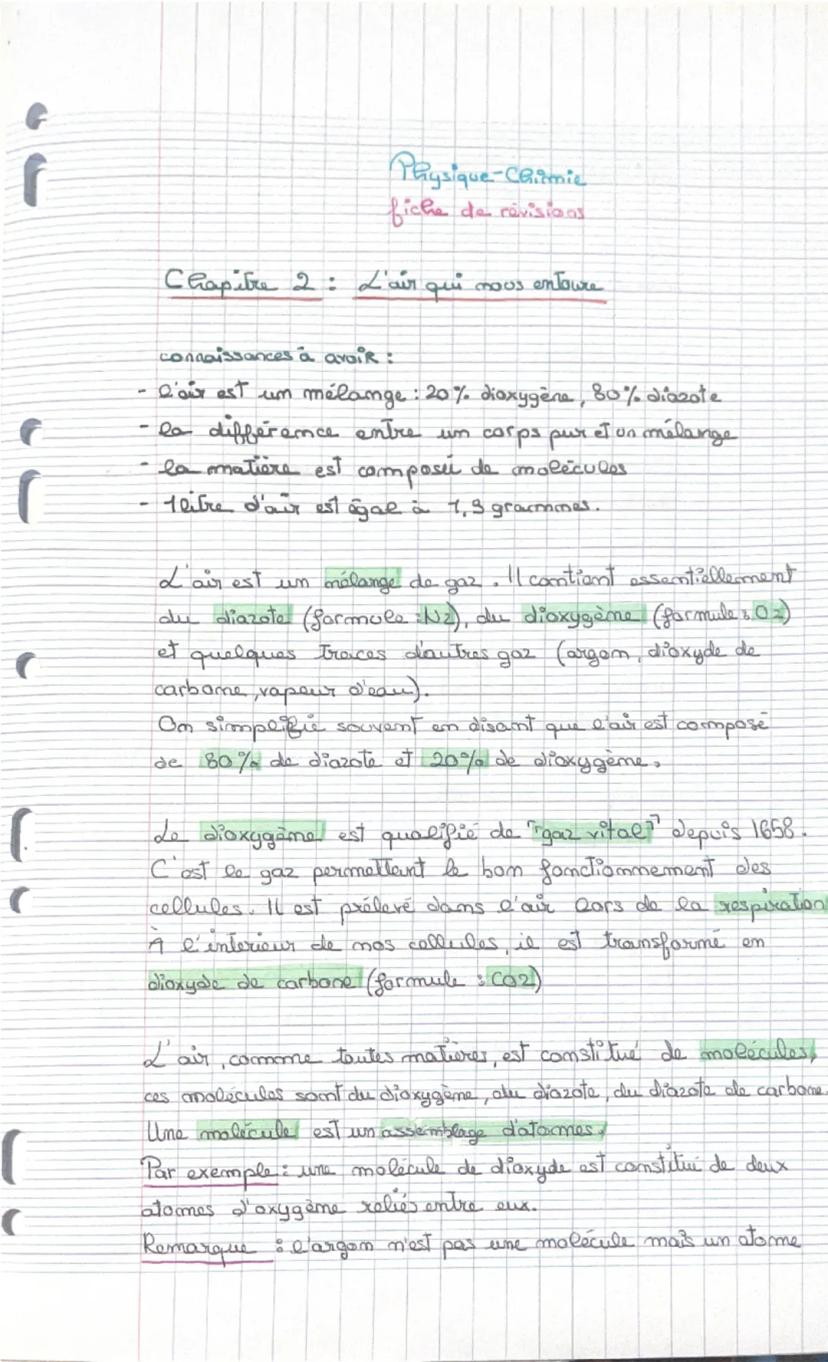 Physique-Chimie
fiche de révisions
Chapitre 2 : L'air qui nous entoure
connaissances à avoir :
- l'air est un mélange : 20% dioxygène, 80% diazote
- la différence entre un corps pur et un mélange
- la matière est composée de molécules
- 1 litre d'air est égal à 1,3 grammes.
L'air est un mélange de gaz. Il contient essentiellement
du diazote (formule : N2), du dioxygène (formule : O2)
et quelques traces d'autres gaz (argon, dioxyde de
carbone, vapeur d'eau).
On simplifie souvent en disant que l'air est composé
de 80% de diazote et 20% de dioxygène.
Le dioxygène est qualifié de "gaz vital" depuis 1658.
C'est le gaz permettant le bon fonctionnement des
cellules. Il est prélevé dans l'air lors de la respiration
À l'intérieur de nos cellules, il est transformé en
dioxyde de carbone (formule : CO2)
L'air, comme toutes matières, est constitué de molécules,
ces molécules sont du dioxygène, du diazote, du diazote de carbone
Une molécule est un assemblage d'atomes.
Par exemple : une molécule de dioxyde est constitué de deux
atomes d'oxygène reliés entre eux.
Remarque : l'argon n'est pas une molécule mais un atome